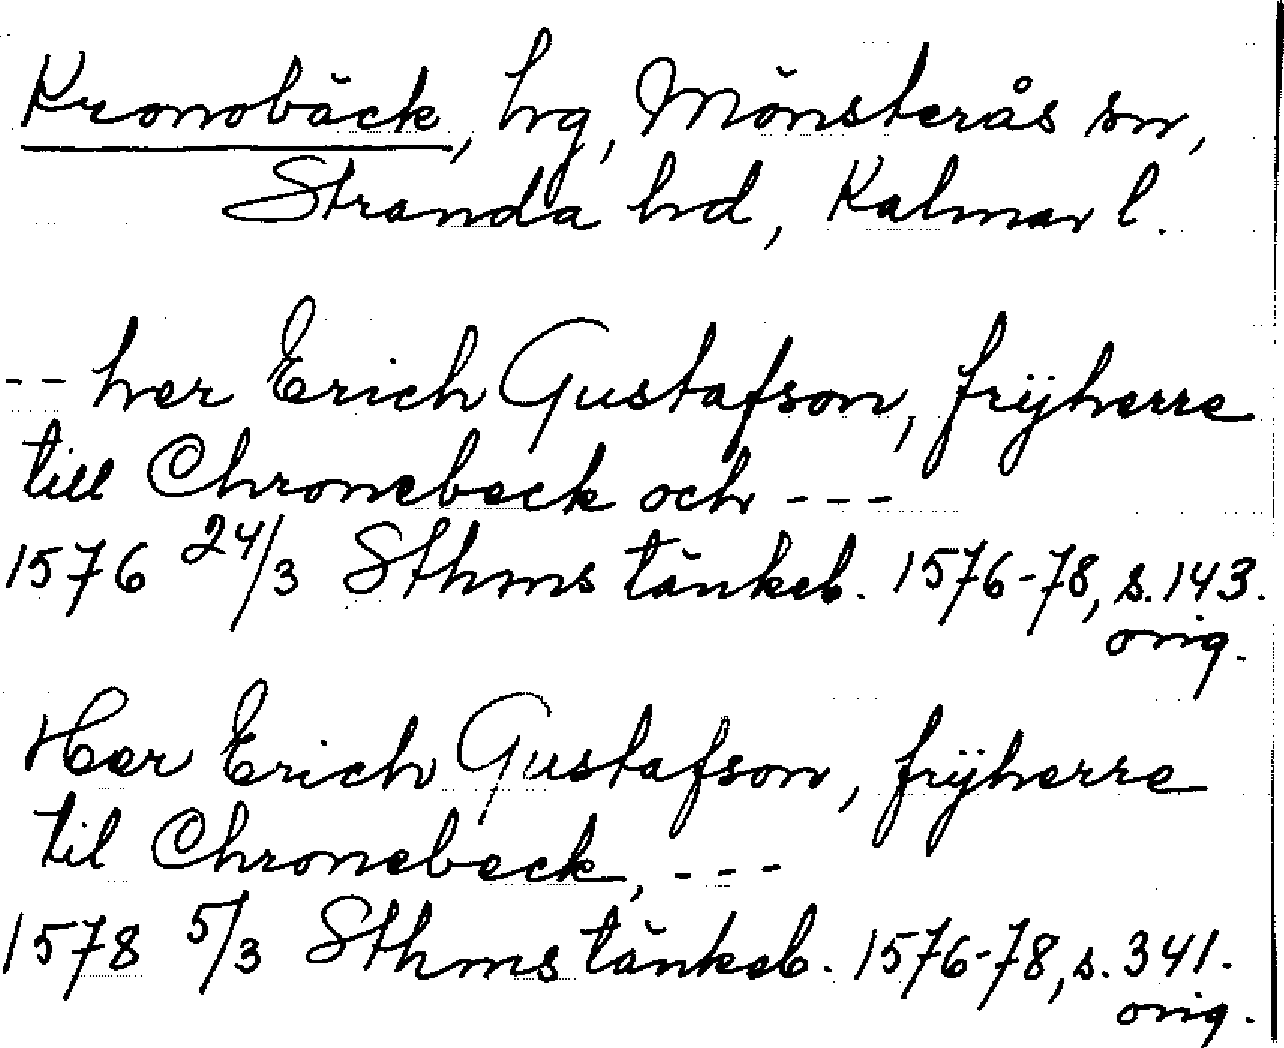 Kronobäck, hg, Mönsterås sn,
Stranda hd, Kalmar l.
-- her Erich Gustafson, frijherre
till Chronebeck och ---
1576 24/3 Sthms tänkeb. 1576-78, s. 143.
orig.
Her Erich Gustafson, frÿherre
til Chronebeck, ---
1578 5/3 Sthms tänkeb. 1576-78, s. 341.
orig.